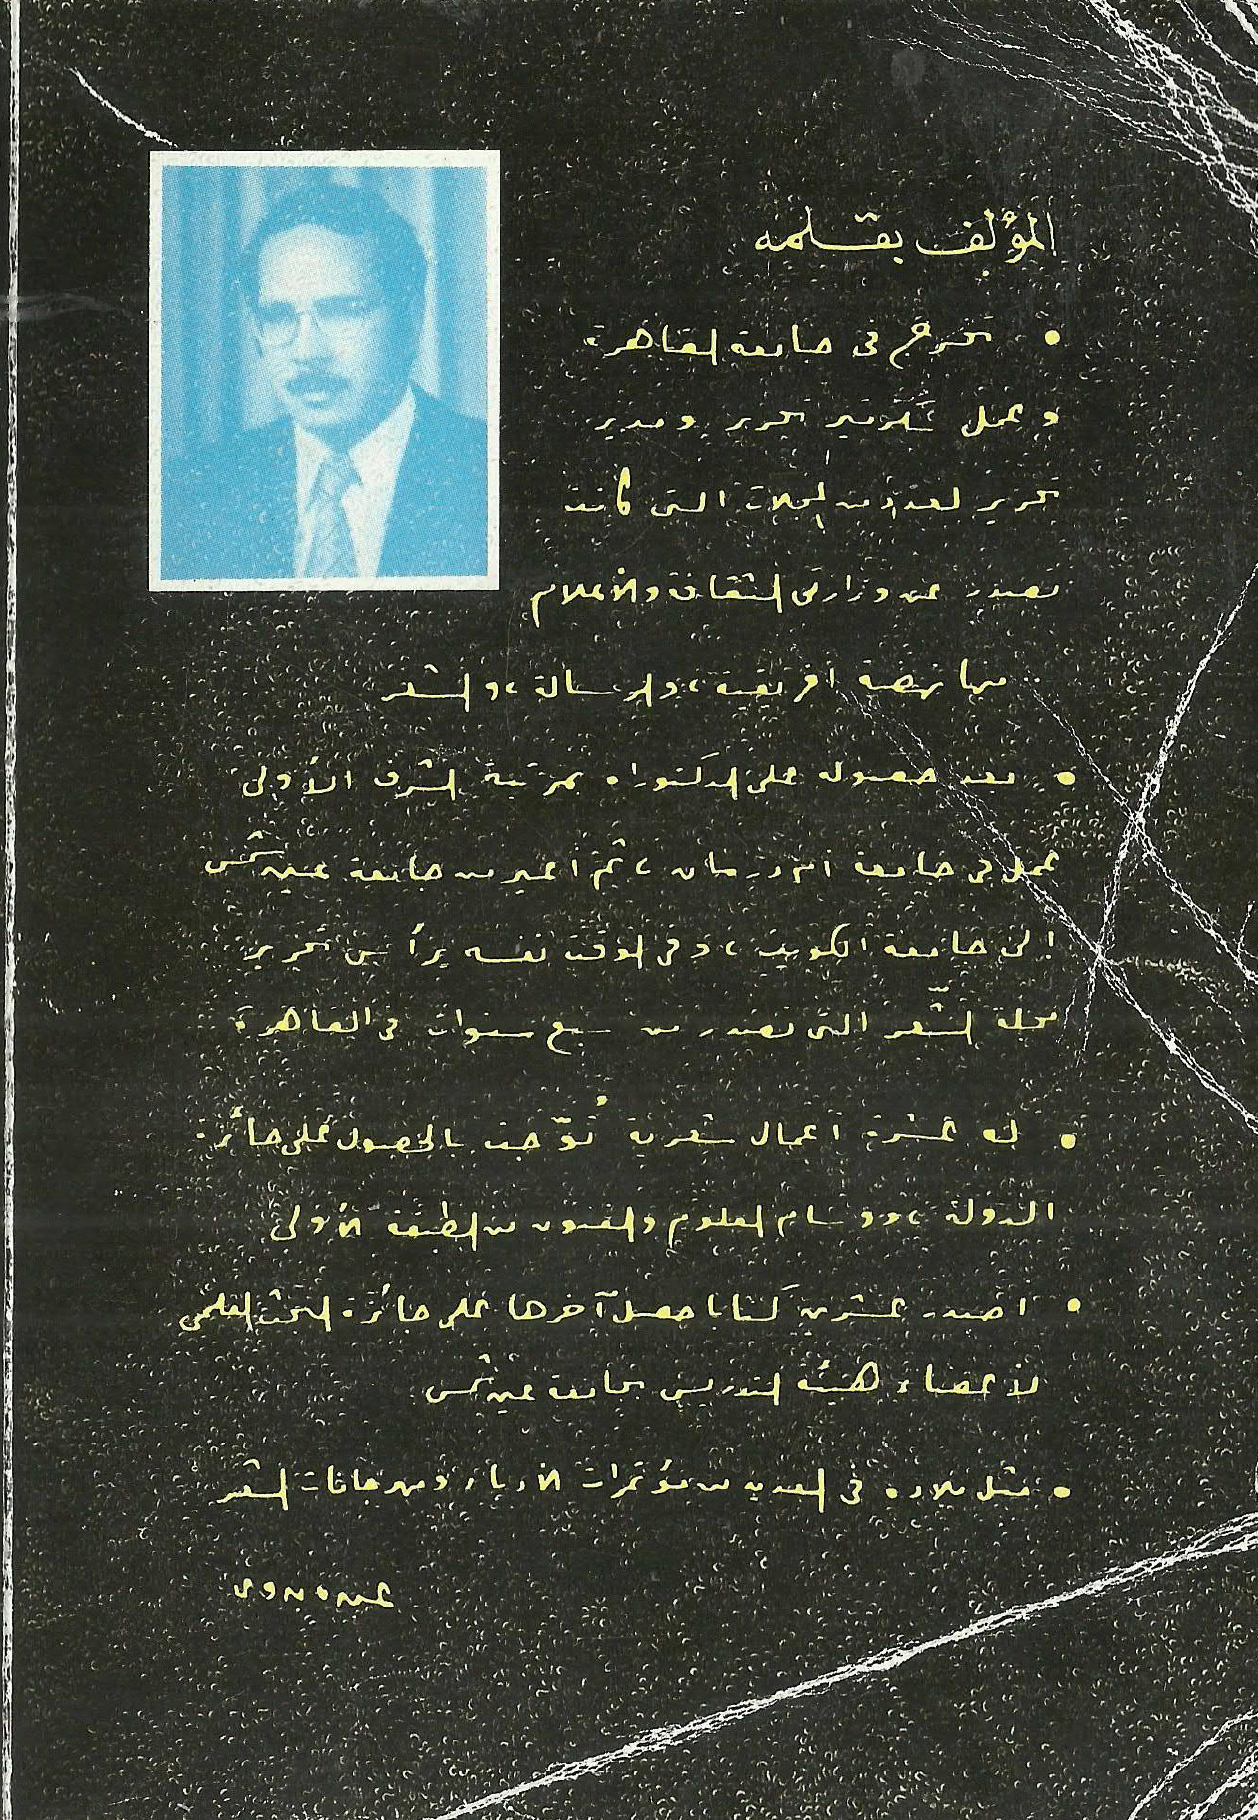 المؤلف بقلمه
• تخرج فى جامعة القاهرة
وعمل سكرتير تحرير ومدير
تحرير لعدد من المجلات التى كانت
تصدر عن وزارتى الثقافة والأعلام
منها نهضة افريقية، والرسالة، والشعر
• بعد حصوله على الدكتوراه بمرتبة الشرف الأولى
عمل فى جامعة أم درمان، ثم أعير من جامعة عين شمس
إلى جامعة الكويت، وفى الوقت نفسه يرأس تحرير
مجلة الشّعر التى تصدر من سبع سنوات فى القاهرة
• له عشرة أعمال شعرية تُوّجت بالحصول على جائزة
الدولة، ووسام العلوم والفنون من الطبقة الأولى
• أصدر عشرين كتابا حصل آخرها على جائزة البحث العلمى
لأعضاء هيئة التدريس بجامعة عين شمس
• مثل بلاده فى العديد من مؤتمرات الأدباء ومهرجانات الشعر
عبده بدوى